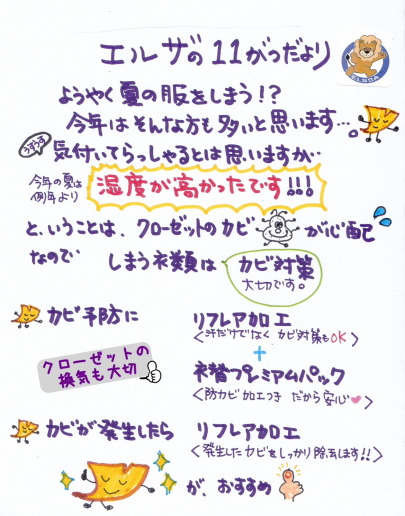 エルザの11がつだより
ようやく夏の服をしまう!?
今年はそんな方も多いと思います…
うすうす
気付いてらっしゃるとは思いますが…
今年の夏は
例年より
湿度が高かったです!!!
と、いうことは、クローゼットのカビ が心配
なので しまう衣類は カビ対策
大切です。
カビ予防に リフレア加工
<汗だけでなく カビ対策もOK>
+
クローゼットの
換気も大切
衣替プレミアムパック
<防カビ加工つき だから安心♥>
カビが発生したら リフレア加工
<発生したカビをしっかり除去します!!>
が、おすすめ